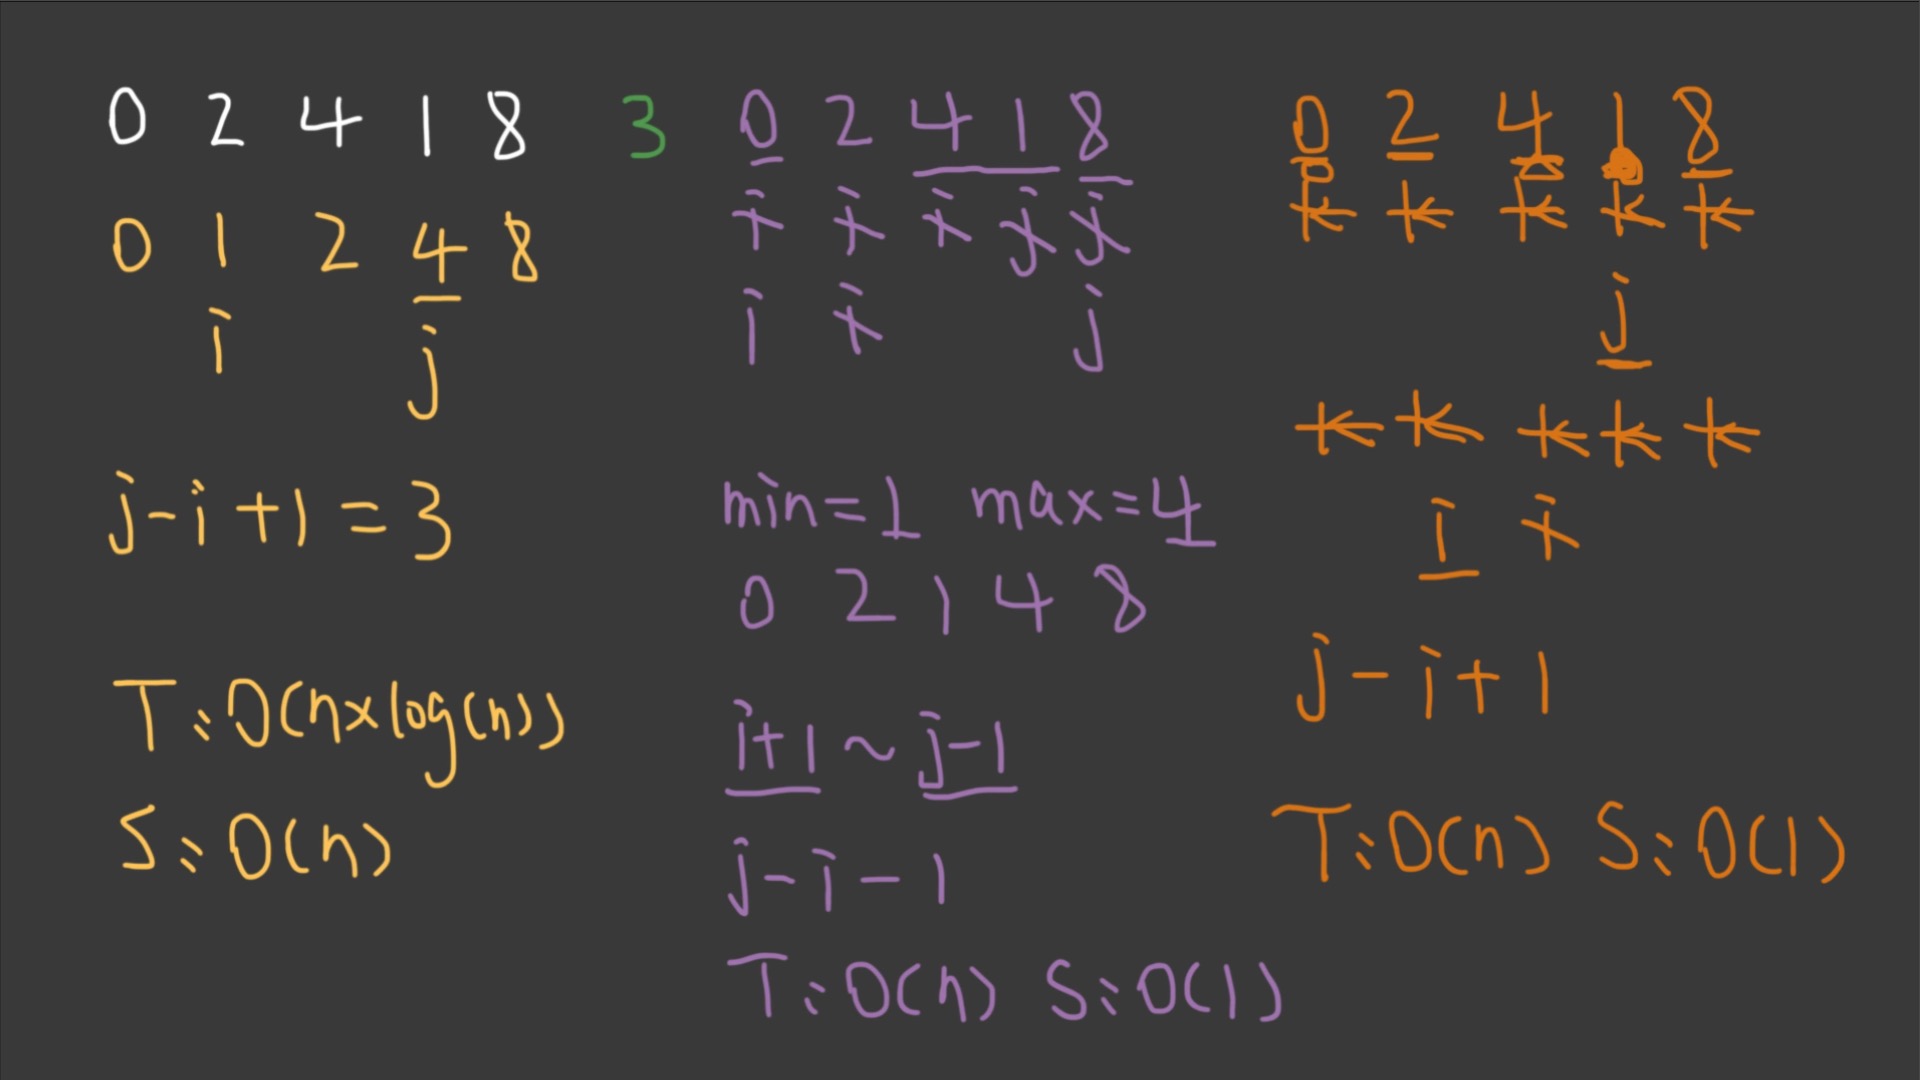 0 2 4 1 8
3
0 1 2 4 8
i
j
j-i+1=3
T:O(n×log(n))
S:O(n)
0 2 4 1 8
i i i j j
i i j
min=1 max=4
0 2 1 4 8
i+1~j-1
j-i-1
T:O(n) S:O(1)
0 2 4 1 8
k k k k k
j
k k k k k
i i
j-i+1
T:O(n) S:O(1)